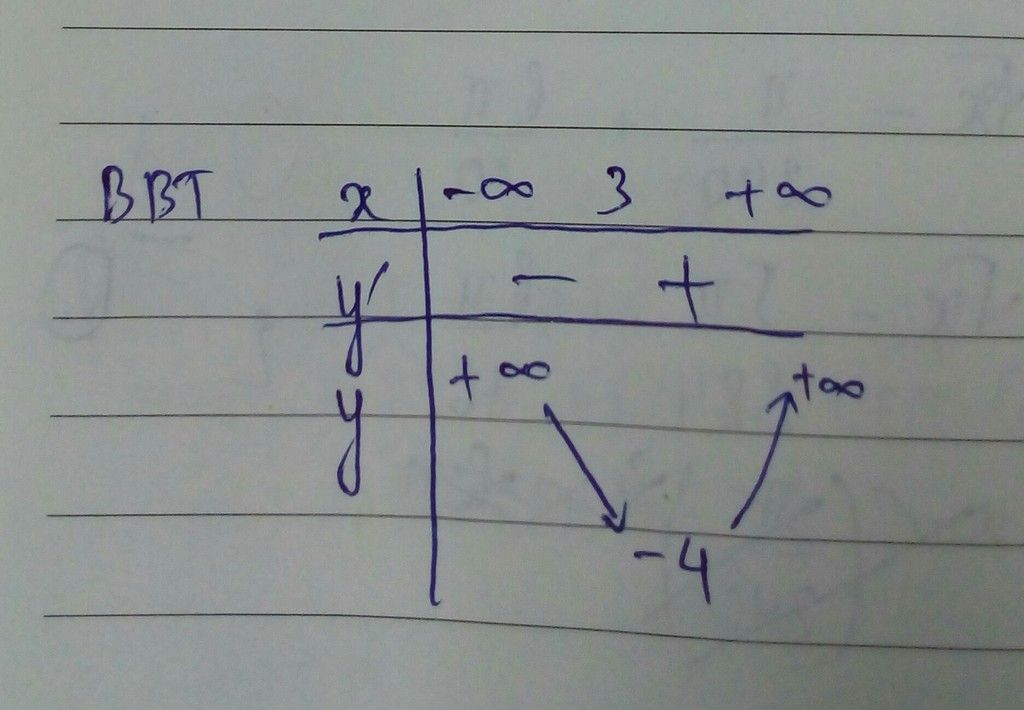 BBT x -∞ 3 +∞
y' - +
y +∞ +∞
-4